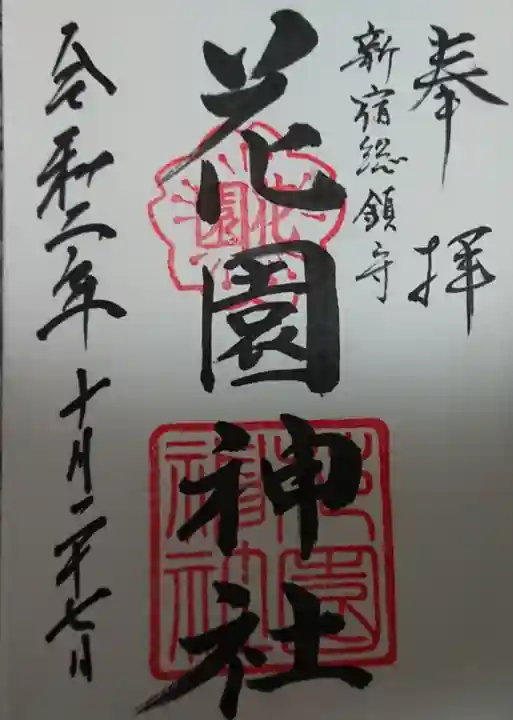 奉拝
新宿総鎮守
花園神社
令和二年十月二十七日
花園
花園神社